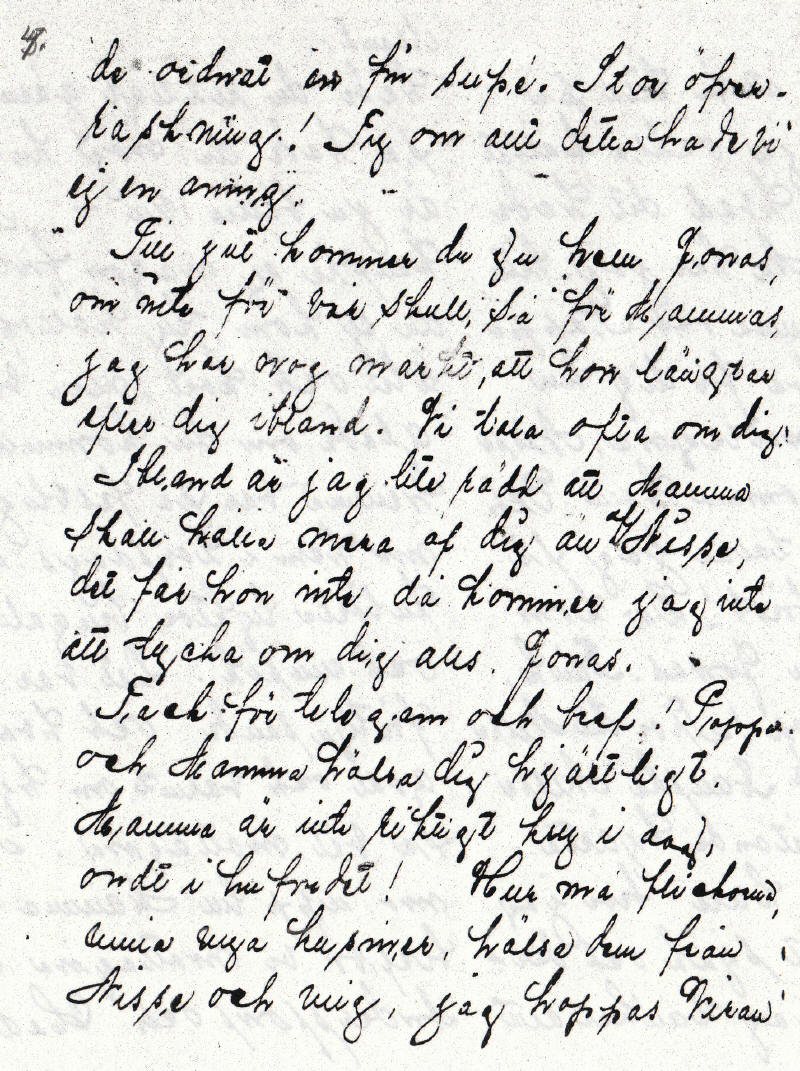 8.
de ordnat en fin supé. Stor öfver-
raskning! Ty om allt detta hade vi
ej en aning.
Till jul kommer du ju hem Jonas,
om inte för vår skull, så för Mammas,
jag har nog märkt, att hon längtar
efter dig ibland. Vi tala ofta om dig!
Ibland är jag lite rädd att Mamma
skall hålla mera af dig än af Nisse,
det får hon inte, då kommer jag inte
att tycka om dig alls. Jonas.
Tack för telegram och bref! Pappa
och Mamma hälsa dig hjärtligt.
Mamma är inte riktigt kry i dag,
ondt i hufvudet! Hur må flickorna,
mina nya kusiner, hälsa dem från
Nisse och mig, jag hoppas Veran